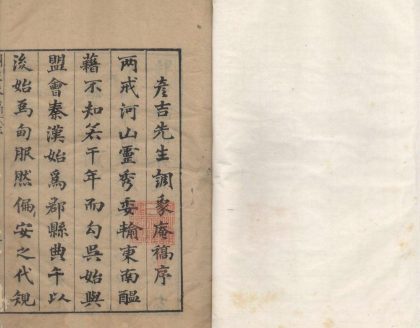 彦吉先生調象庵稿序
兩戒河山靈秀委輸東南醖
藉不知若干年而勾吳始與
盟會秦漢始為郡縣典午以
後始為甸服然偏安之代規